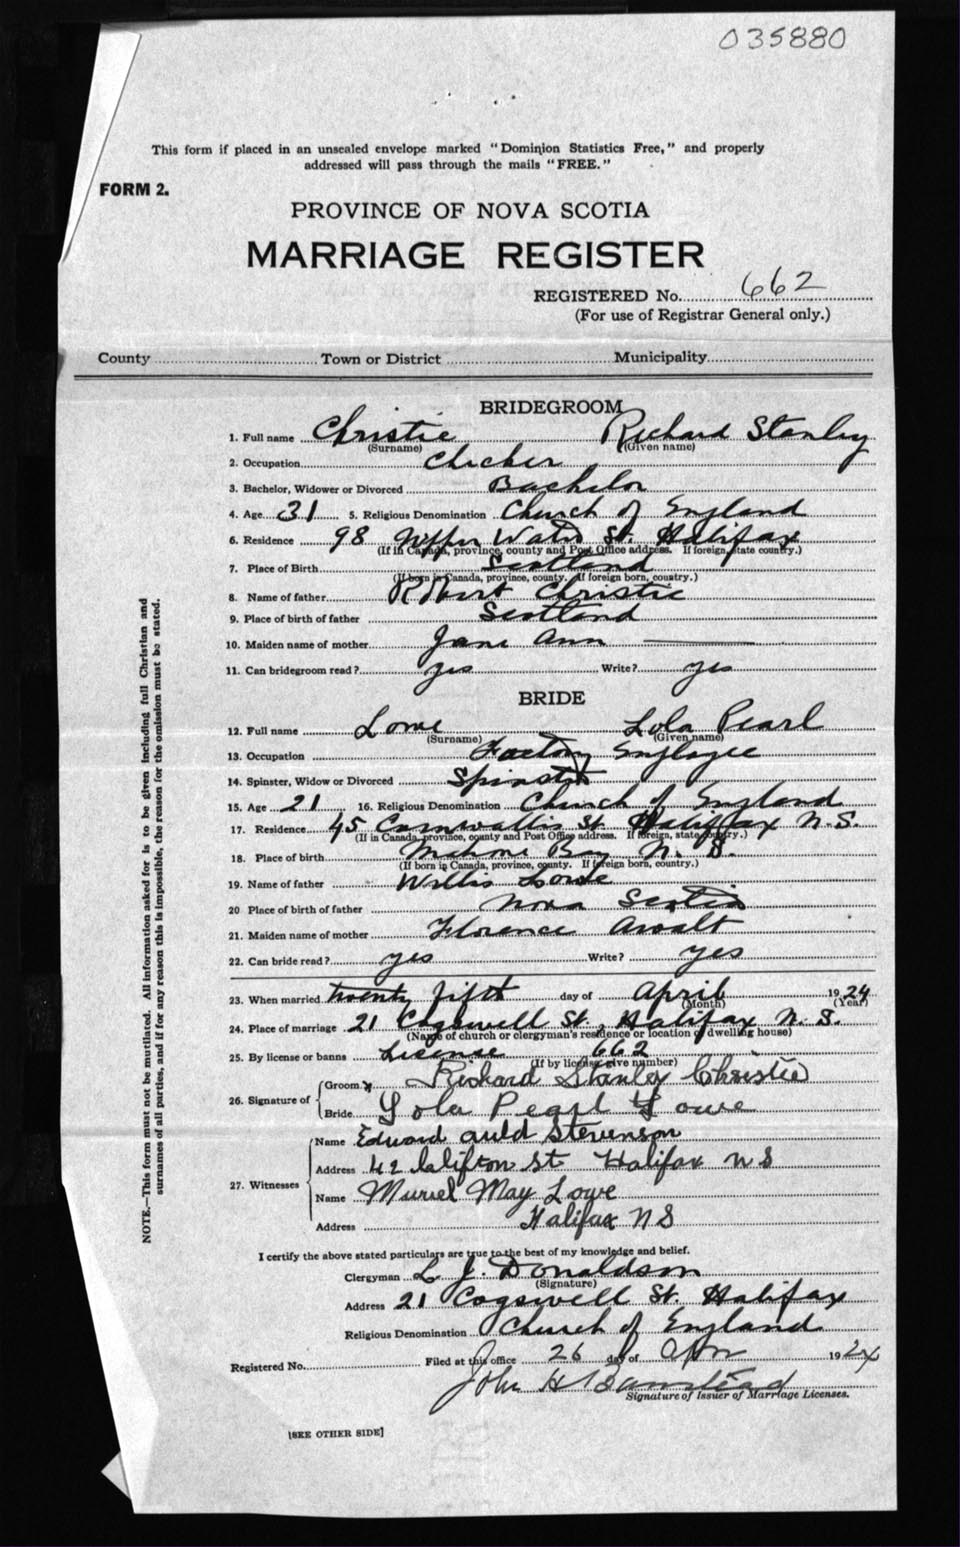 035880
This form if placed in an unsealed envelope marked "Dominion Statistics Free," and properly
addressed will pass through the mails "FREE."
FORM 2.
PROVINCE OF NOVA SCOTIA
MARRIAGE REGISTER
REGISTERED No. 662
(For use of Registrar General only.)
County Town or District Municipality
BRIDEGROOM
1. Full name Christie Richard Stanley
(Surname) (Given name)
2. Occupation Checker
3. Bachelor, Widower or Divorced Bachelor
4. Age 31 5. Religious Denomination Church of England
6. Residence 98 Upper Water St. Halifax
(If in Canada, province, county and Post Office address. If foreign, state country.)
7. Place of Birth Scotland
(If born in Canada, province, county. If foreign born, country.)
8. Name of father Robert Christie
9. Place of birth of father Scotland
10. Maiden name of mother Jane Ann
11. Can bridegroom read? yes Write? yes
BRIDE
12. Full name Lowe Lola Pearl
(Surname) (Given name)
13. Occupation Factory Employee
14. Spinster, Widow or Divorced Spinster
15. Age 21 16. Religious Denomination Church of England
17. Residence 45 Cornwallis St. Halifax N.S.
(If in Canada, province, county and Post Office address. If foreign, state country.)
18. Place of birth Mahone Bay N. S.
(If born in Canada, province, county. If foreign born, country.)
19. Name of father Willis Lowe
20 Place of birth of father Nova Scotia
21. Maiden name of mother Florence
22. Can bride read? yes Write? yes
23. When married twenty fifth day of April 1924
(Month) (Year)
24. Place of marriage 21 Cogswell St., Halifax N. S.
(Name of church or clergyman's residence or location of dwelling house)
25. By license or banns License 662
(If by license give number)
26. Signature of Groom Richard Stanley Christie
Bride Lola Pearl Lowe
27. Witnesses Name Edward Auld Stevenson
Address 42 Clifton St Halifax N S
Name Muriel May Lowe
Address Halifax N S
I certify the above stated particulars are true to the best of my knowledge and belief.
Clergyman L. J. Donaldson
(Signature)
Address 21 Cogswell St. Halifax
Religious Denomination Church of England
Registered No. Filed at this office 26 day of Apr 1924
John H Barnstead
Signature of Issuer of Marriage Licenses.
[SEE OTHER SIDE]
NOTE.—This form must not be mutilated. All information asked for is to be given including full Christian and
surnames of all parties, and if for any reason this is impossible, the reason for the omission must be stated.